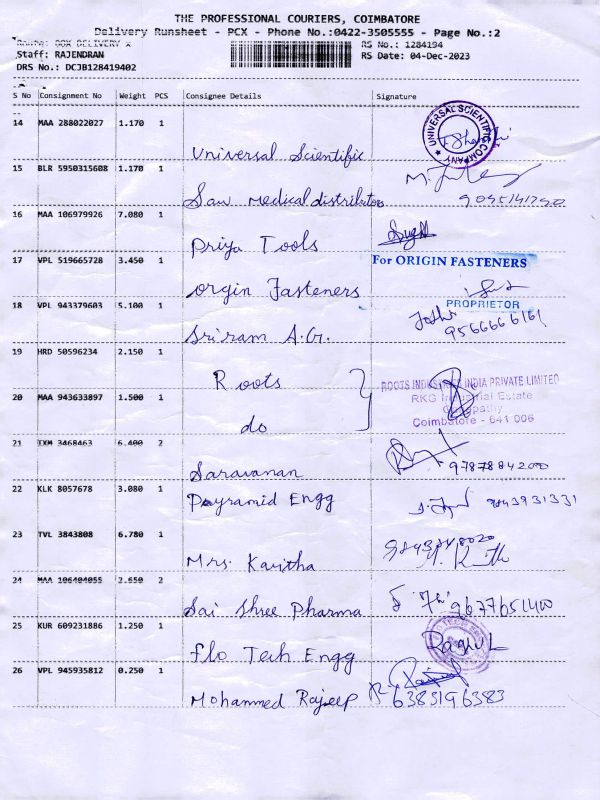 THE PROFESSIONAL COURIERS, COIMBATORE
Delivery Runsheet - PCX - Phone No.:0422-3505555 - Page No.:2
RS No.: 1284194
Staff: RAJENDRAN
RS Date: 04-Dec-2023
DRS No.: DCJB128419402
S No Consignment No Weight PCS Consignee Details Signature
14 MAA 288022027 1.170 1
Universal Scientific
UNIVERSAL SCIENTIFIC COMPANY
15 BLR 5950315608 1.170 1
Medical distributors
16 MAA 106979926 7.080 1
Priya Tools
17 VPL 519665728 3.450 1
For ORIGIN FASTENERS
orgin Fasteners
PROPRIETOR
18 VPL 943379603 5.100 1
Sriram A.G.
9566666161
19 HRD 50596234 2.150 1
Roots
ROOTS INDUSTRIES INDIA PRIVATE LIMITED
20 MAA 943633897 1.500 1
RKG Industrial Estate
do
Coimbatore - 641 006
21 TXM 3468463 6.400 2
Saravanan
9787884200
22 KLK 8057678 3.080 1
Payramid Engg
9843931331
23 TVL 3843808 6.780 1
Mrs. Kavitha
24 MAA 106404055 2.650 2
Sai Shree Pharma
9677651400
25 KUR 609231886 1.250 1
Flo Tech Engg
Raghul
26 VPL 945935812 0.250 1
Mohammed Rajeep
6383196383